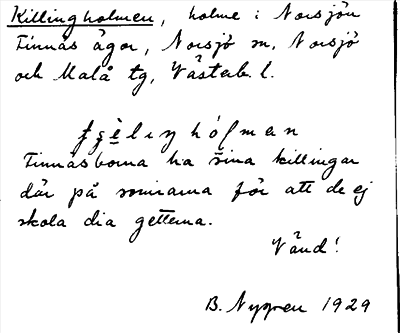 Killingholmen, holme i Norsjön
Finnäs ägor, Norsjö sn, Norsjö
och Malå tg, Västerb. l.
Finnäsborna ha sina killingar
där på somrarna för att de ej
skola dia getterna.
Vänd!
B. Nygren 1929